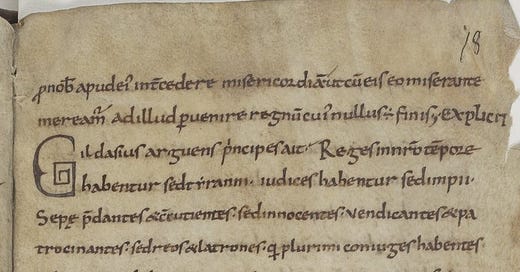 78
ꝓ nob̄ apud eī int̄cedere misericordiā · ut cū eis eo miserante
meream̄ ad illud ꝑvenire regnū cui' nullus ÷ finis ; Explicit
Gildasius arguens p̄ncipes ait · Reges in nr̄o tēpore
habentur sed tyranni · iudices habentur sed impii ·
Sepę p̄dantes & c̄cutientes · sed innocentes · vendicantes & pa
trocinantes · sed reos & latrones · q̄ plurimi coniuges habentes ·